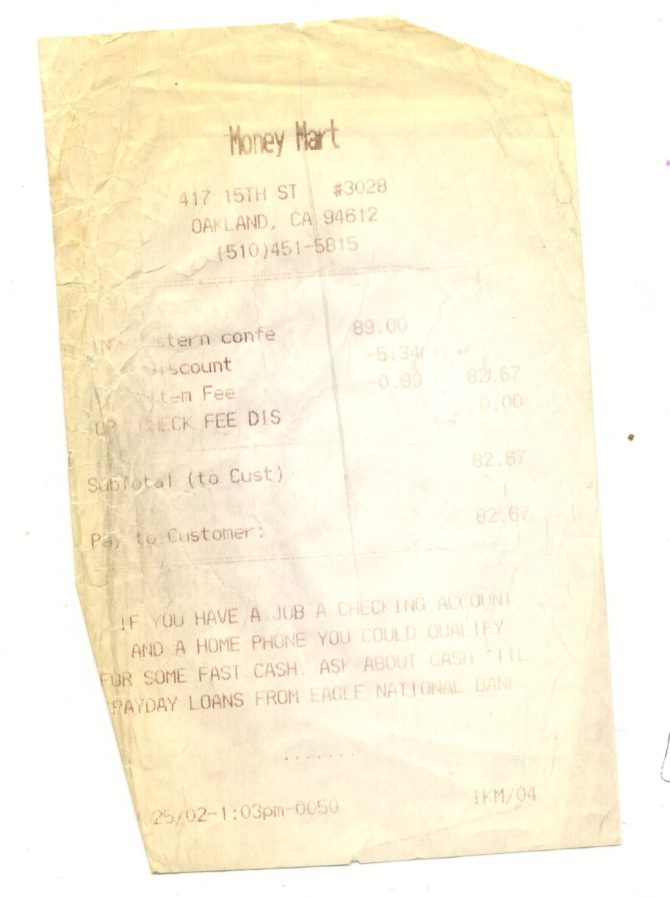 Money Mart
417 15TH ST #3028
OAKLAND, CA 94612
(510)451-5815
stern confe 89.00
iscount -5.34
tem Fee -0.99 82.67
CHECK FEE DIS 0.00
Subtotal (to Cust) 82.67
Pay to Customer: 82.67
IF YOU HAVE A JOB A CHECKING ACCOUNT
AND A HOME PHONE YOU COULD QUALIFY
FOR SOME FAST CASH. ASK ABOUT CASH 'TIL
PAYDAY LOANS FROM EAGLE NATIONAL BANK.
.......
25/02-1:03pm-0050 IKM/04